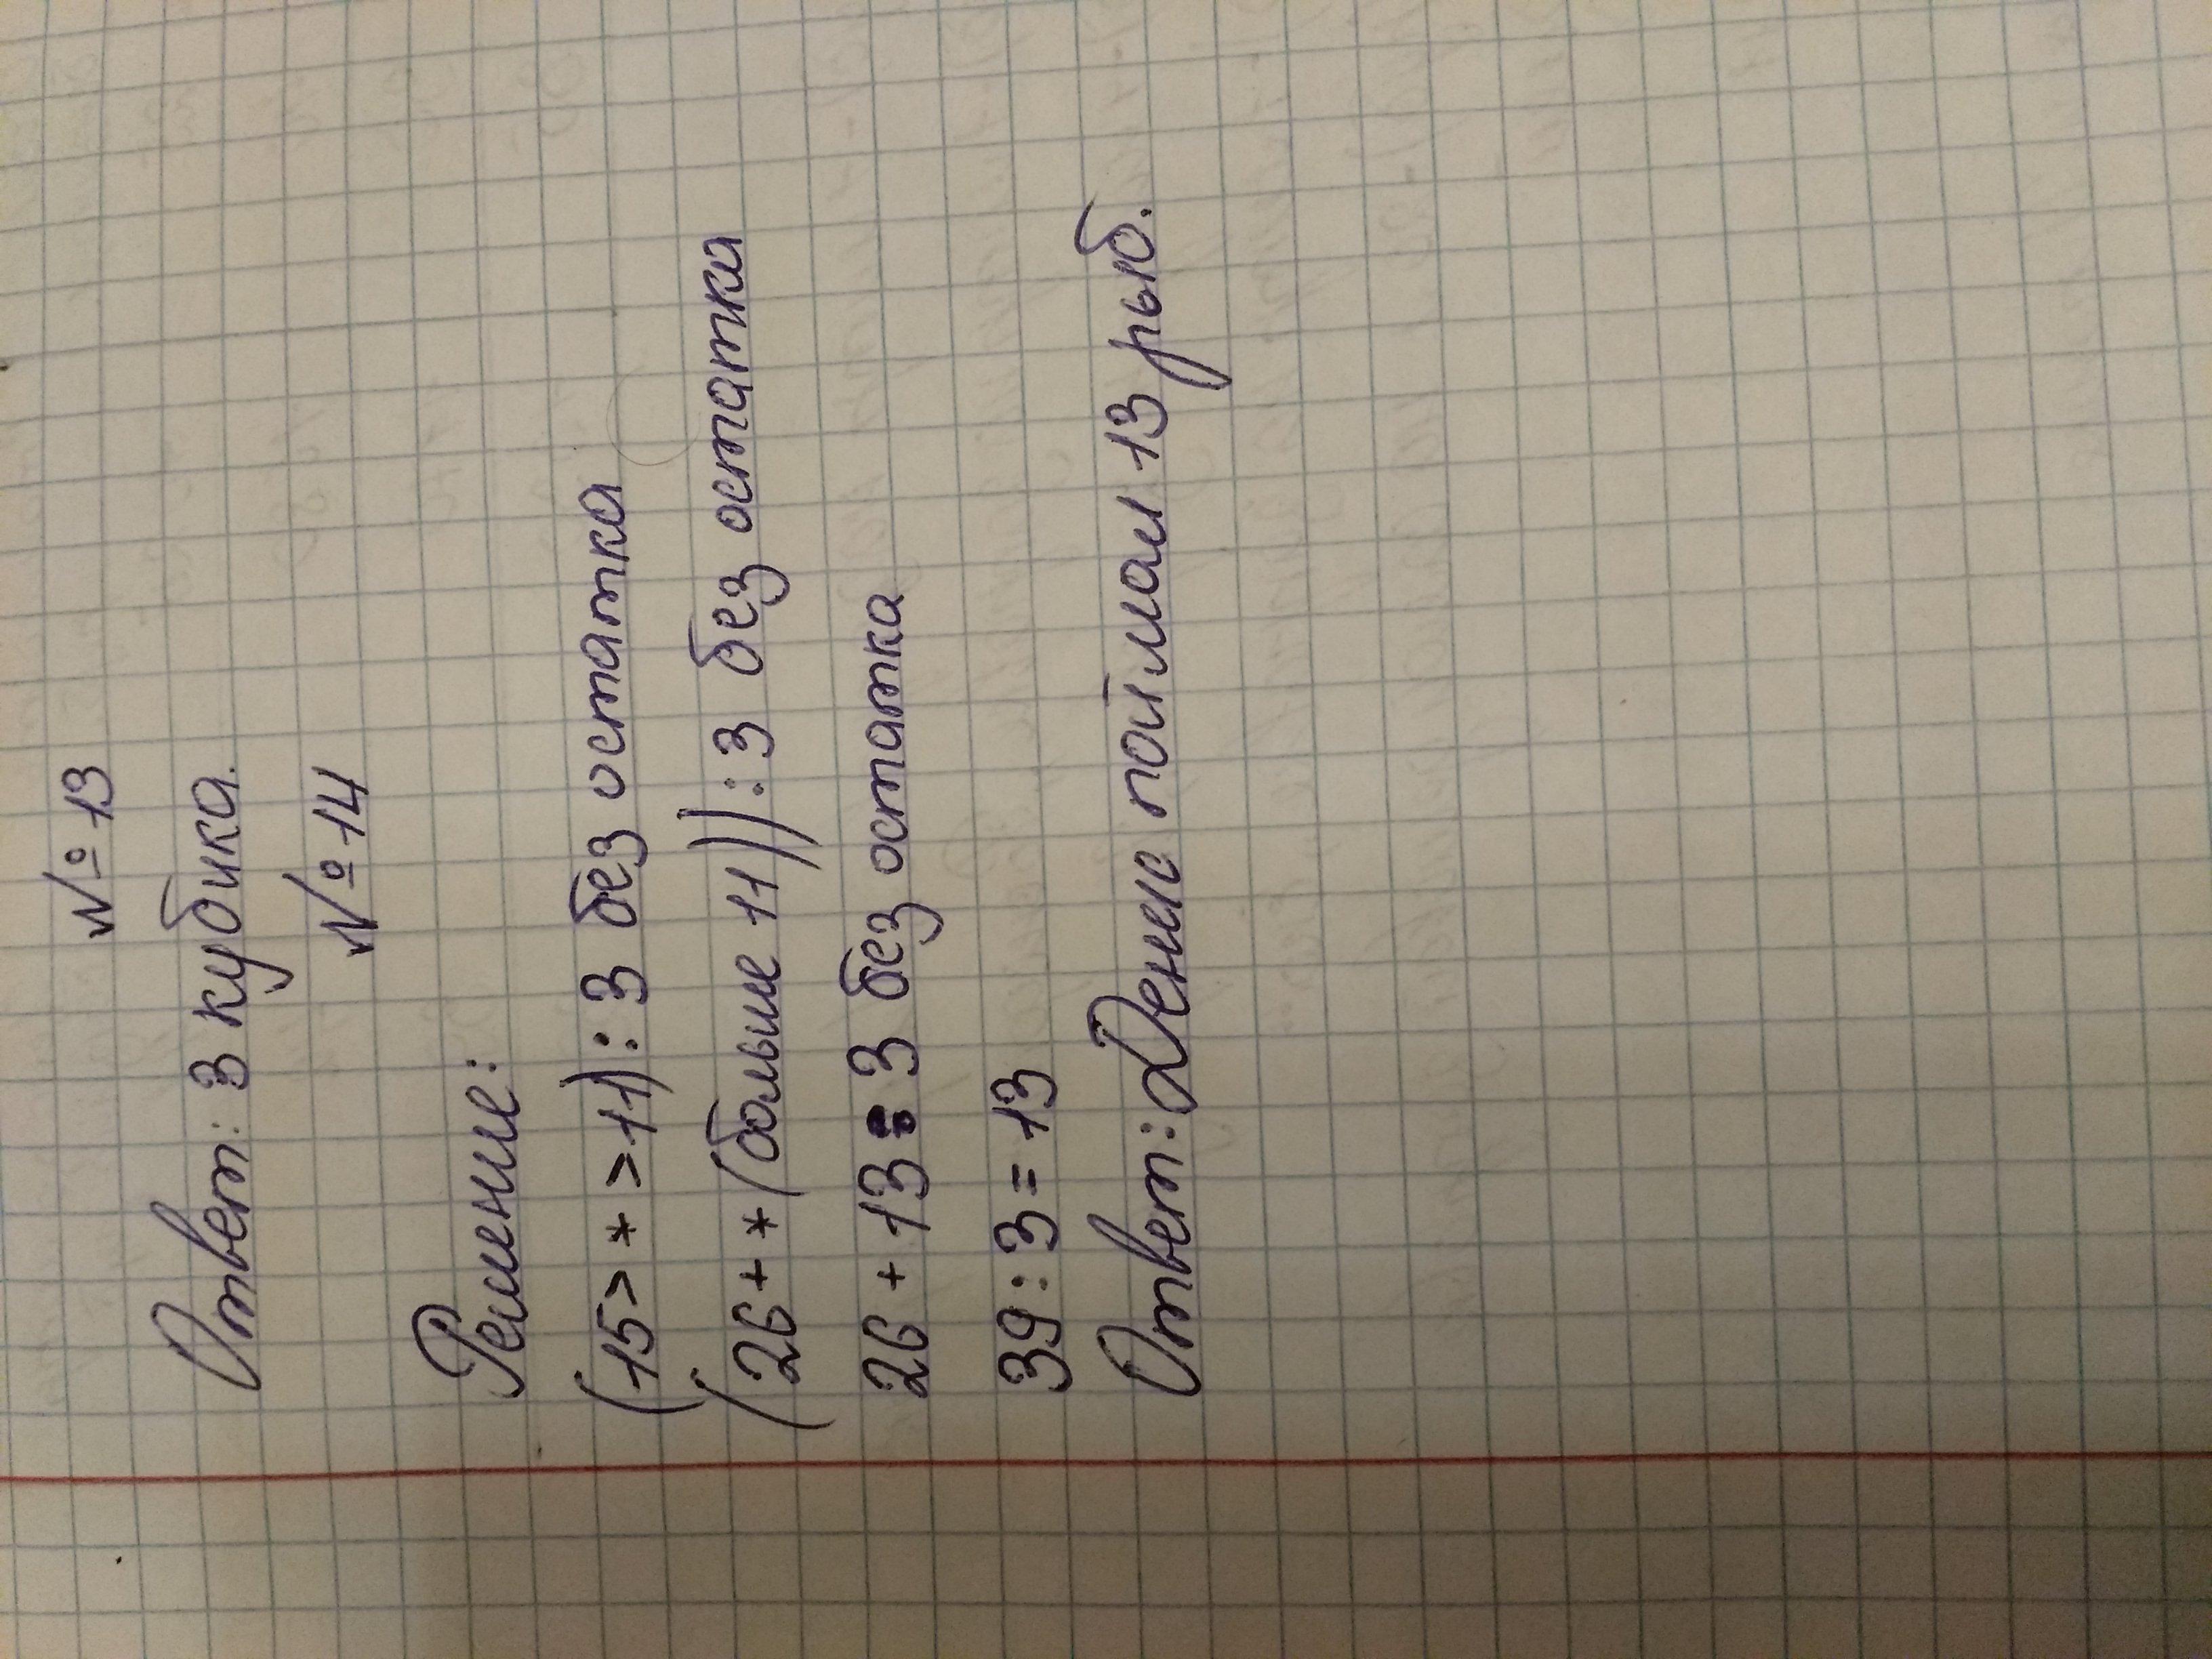 № 13
Ответ: 3 кубика.
№ 14
Решение:
(15 > * > 11) : 3 без остатка
(26 + * (больше 11)) : 3 без остатка
26 + 13 : 3 без остатка
39 : 3 = 13
Ответ: Денис поймал 13 рыб.